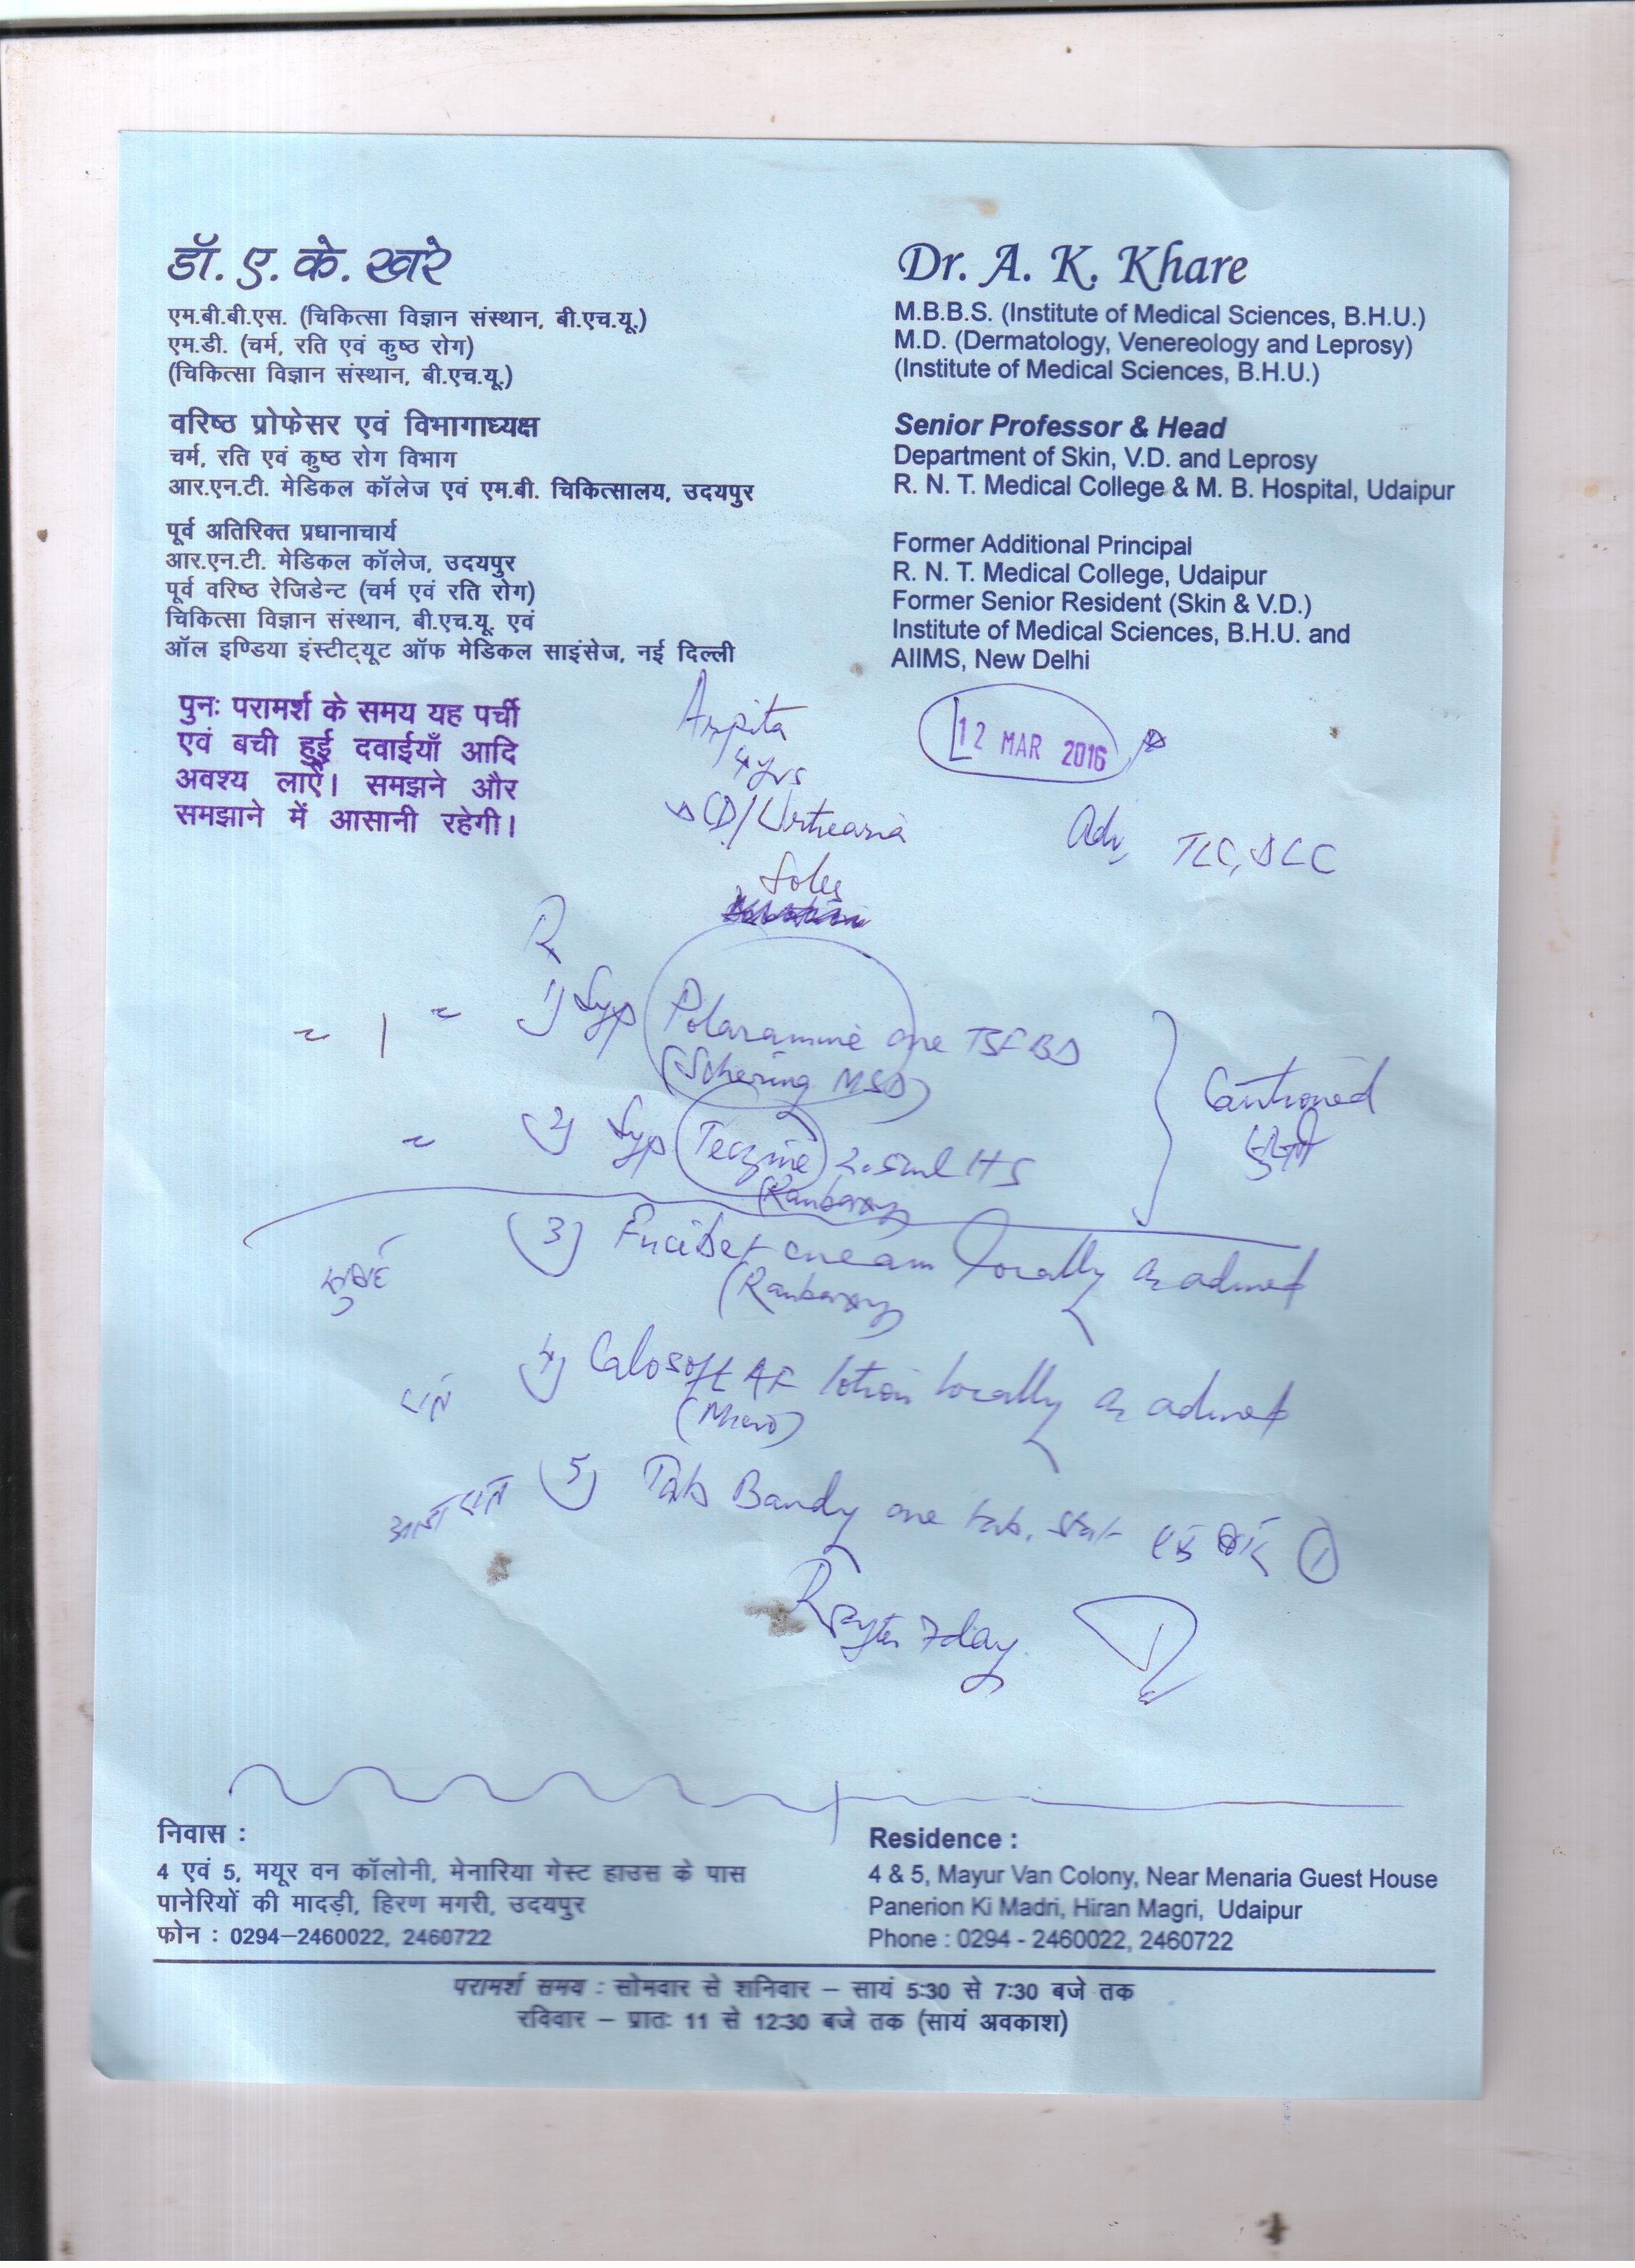 डॉ. ए. के. खरे
एम.बी.बी.एस. (चिकित्सा विज्ञान संस्थान, बी.एच.यू.)
एम.डी. (चर्म, रति एवं कुष्ठ रोग)
(चिकित्सा विज्ञान संस्थान, बी.एच.यू.)
वरिष्ठ प्रोफेसर एवं विभागाध्यक्ष
चर्म, रति एवं कुष्ठ रोग विभाग
आर.एन.टी. मेडिकल कॉलेज एवं एम.बी. चिकित्सालय, उदयपुर
पूर्व अतिरिक्त प्रधानाचार्य
आर.एन.टी. मेडिकल कॉलेज, उदयपुर
पूर्व वरिष्ठ रेजिडेन्ट (चर्म एवं रति रोग)
चिकित्सा विज्ञान संस्थान, बी.एच.यू. एवं
ऑल इण्डिया इंस्टीट्यूट ऑफ मेडिकल साइंसेज, नई दिल्ली
Dr. A. K. Khare
M.B.B.S. (Institute of Medical Sciences, B.H.U.)
M.D. (Dermatology, Venereology and Leprosy)
(Institute of Medical Sciences, B.H.U.)
Senior Professor & Head
Department of Skin, V.D. and Leprosy
R. N. T. Medical College & M. B. Hospital, Udaipur
Former Additional Principal
R. N. T. Medical College, Udaipur
Former Senior Resident (Skin & V.D.)
Institute of Medical Sciences, B.H.U. and
AIIMS, New Delhi
पुनः परामर्श के समय यह पर्ची
एवं बची हुई दवाईयाँ आदि
अवश्य लाऐं। समझने और
समझाने में आसानी रहेगी।
Arpita
4 yrs
12 MAR 2016
Urticaria
Adv, TLC, DLC
Soles
1) Syp Polaramine one TSF BD
(Schering MSD)
Cautioned
2) Syp Teczine 2.5ml HS
(Ranbaxy)
सुबह
(3) Fucibet cream locally as advised
(Ranbaxy)
रात
4) Calosoft AF lotion locally as advised
(Micro)
आज रात
5) Tab Bandy one tab. stat एक बार 1
7 day
निवास :
4 एवं 5, मयूर वन कॉलोनी, मेनारिया गेस्ट हाउस के पास
पानेरियों की मादड़ी, हिरण मगरी, उदयपुर
फोन : 0294–2460022, 2460722
Residence :
4 & 5, Mayur Van Colony, Near Menaria Guest House
Panerion Ki Madri, Hiran Magri, Udaipur
Phone : 0294 - 2460022, 2460722
परामर्श समय : सोमवार से शनिवार – सायं 5:30 से 7:30 बजे तक
रविवार – प्रातः 11 से 12:30 बजे तक (सायं अवकाश)